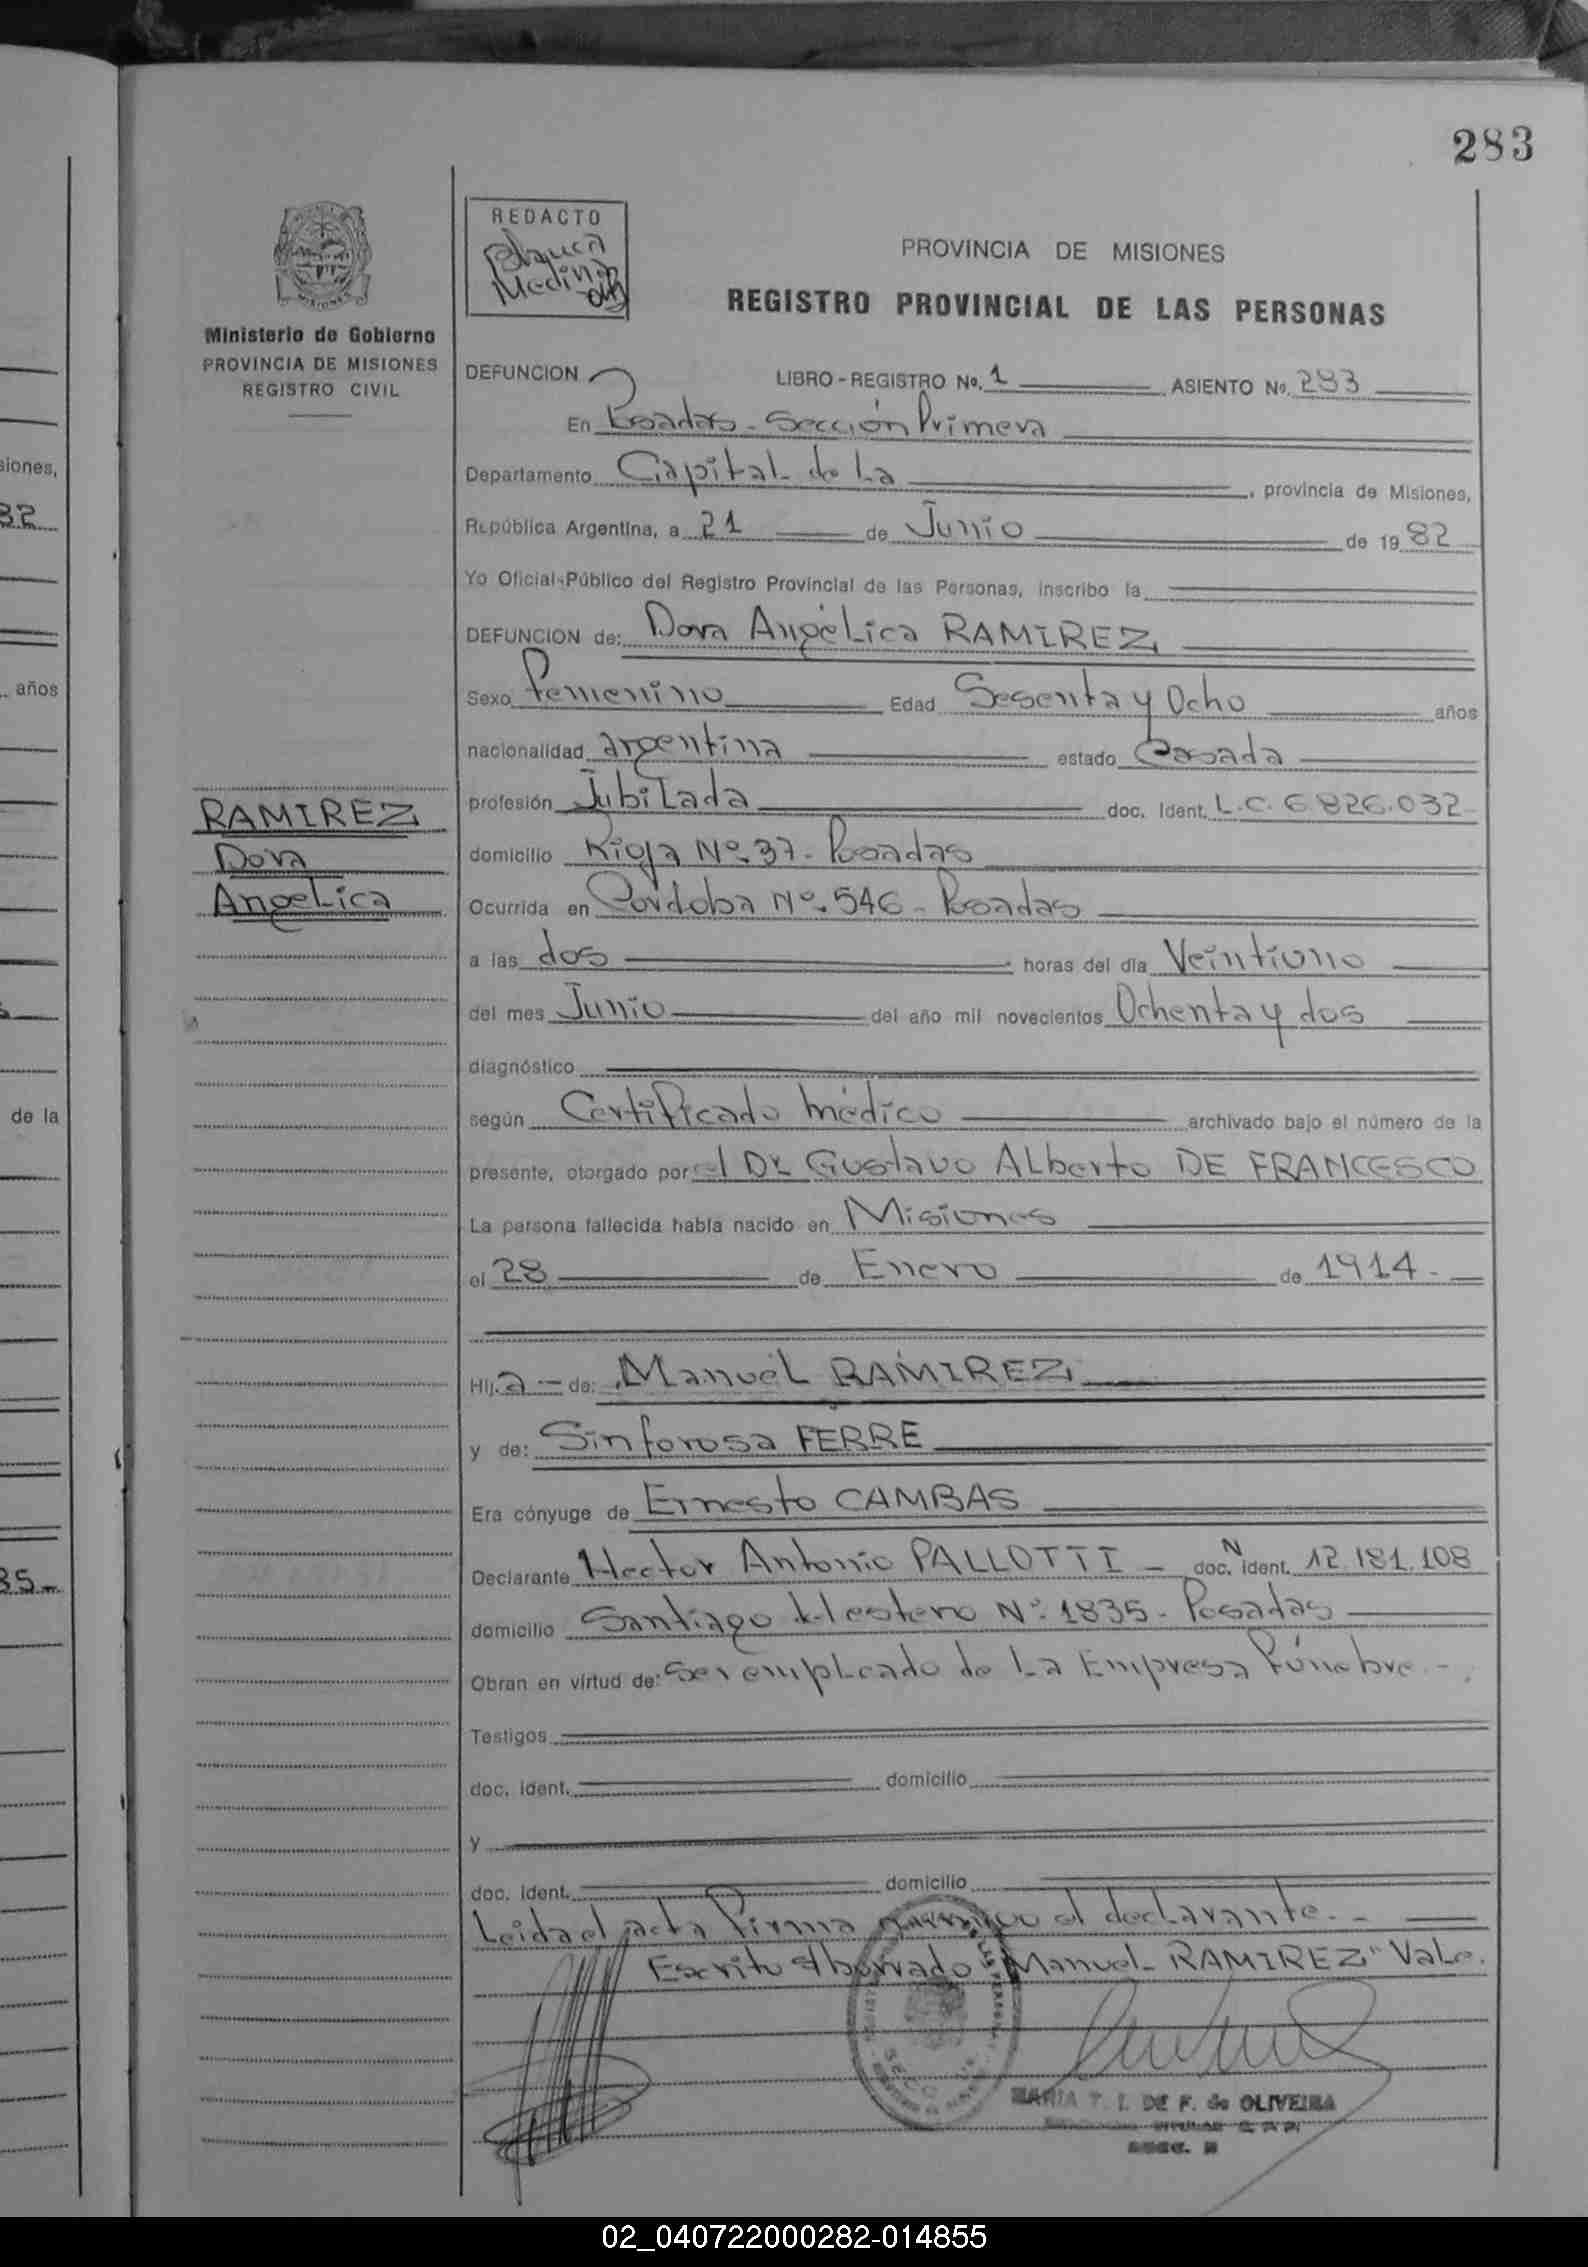 283
MISIONES
Ministerio de Gobierno
PROVINCIA DE MISIONES
REGISTRO CIVIL
REDACTO
Medina
PROVINCIA DE MISIONES
REGISTRO PROVINCIAL DE LAS PERSONAS
DEFUNCION LIBRO-REGISTRO No. 1 ASIENTO No. 283
En Posadas - Sección Primera
Departamento Capital de La , provincia de Misiones,
República Argentina, a 21 de Junio de 1982
Yo Oficial Público del Registro Provincial de las Personas, inscribo la
DEFUNCION de: Dora Angélica RAMIREZ
Sexo Femenino Edad Sesenta y Ocho años
nacionalidad argentina estado Casada
profesión Jubilada doc. Ident. L.C. 6.826.032
RAMIREZ
Dora
Angelica
domicilio Rioja Nº 37 - Posadas
Ocurrida en Córdoba Nº. 546 - Posadas
a las dos horas del día Veintiuno
del mes Junio del año mil novecientos Ochenta y dos
diagnóstico
según Certificado médico archivado bajo el número de la
presente, otorgado por el Dr. Gustavo Alberto DE FRANCESCO
La persona fallecida había nacido en Misiones
el 28 de Enero de 1914.
Hij a - de: Manuel RAMIREZ
y de: Sinforosa FERRE
Era cónyuge de Ernesto CAMBAS
Declarante Hector Antonio PALLOTTI - doc. N ident. 12.181.108
domicilio Santiago del estero Nº 1835 - Posadas
Obran en virtud de: Ser empleado de La Empresa Fúnebre. -
Testigos
doc. ident. domicilio
y
doc. ident. domicilio
Leida el acta Firma conmigo el declarante. -
Escrito s/borrado "Manuel RAMIREZ" Vale.
MARIA T. I. DE F. de OLIVEIRA
siones,
32
años
de la
35-
02_040722000282-014855